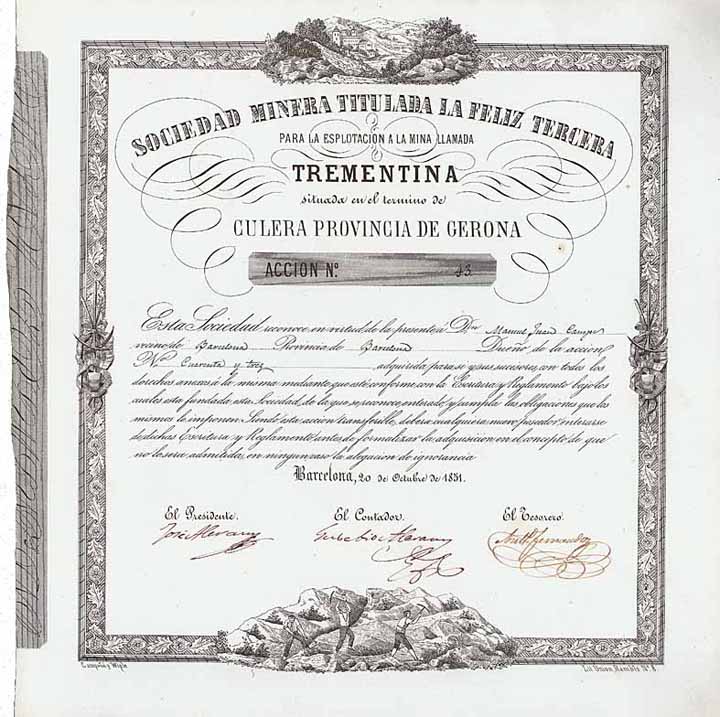 SOCIEDAD MINERA TITULADA LA FELIZ TERCERA
PARA LA ESPLOTACION A LA MINA LLAMADA
TREMENTINA
situada en el termino de
CULERA PROVINCIA DE GERONA
ACCION Nº 43
Esta Sociedad reconoce en virtud de la presente a Dn Manuel Juan
vecino de Barcelona Provincia de Barcelona Dueño de la accion
Nº Cuarenta y tres adquirida para se y sus sucesores con todos los
derechos anexos á la misma mediante que esté conforme con la Escritura y Reglamento bajo los
cuales esta fundada esta Sociedad, de la que se reconoce enterado y cumpla las obligaciones que los
mismos le imponen. Siendo esta accion transferible, debera cualquiera nuevo poseedor enterarse
de dichas Escritura y Reglamento antes de formalizar la adquisicion en el concepto de que
no le sera admitida en ningun caso la alegacion de ignorancia
Barcelona, 20 de Octubre de 1851.
El Presidente. El Contador. El Tesorero.
Lit Union, Rambla Nº 8